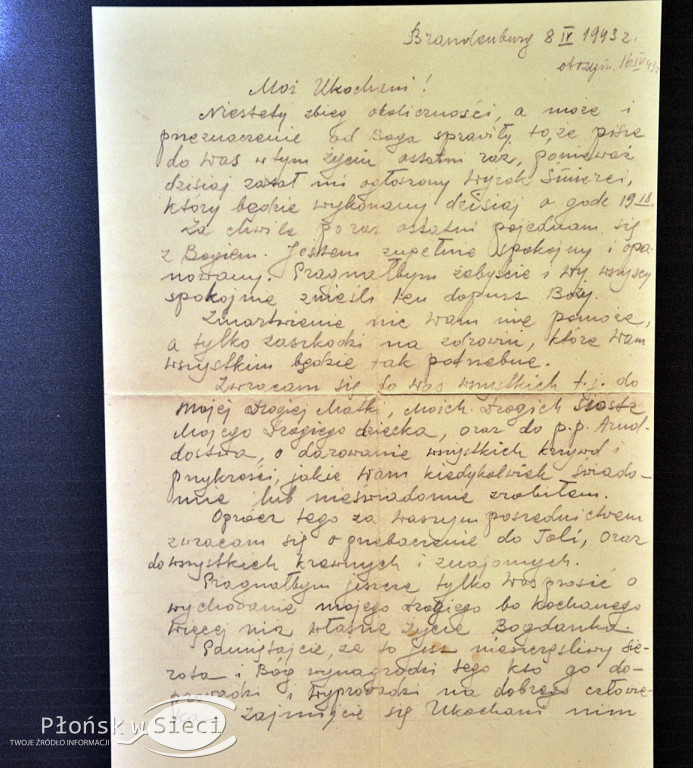 Brandenburg 8 IV 1943 r.
otrzym. 16 IV 43 r
Moi Ukochani!
Niestety zbieg okoliczności, a może i
przeznaczenie od Boga sprawiły to, że piszę
do Was w tym życiu ostatni raz, ponieważ
dzisiaj został mi ogłoszony wyrok śmierci,
który będzie wykonany dzisiaj o godz 19
Za chwilę po raz ostatni pojednam się
z Bogiem. Jestem zupełnie spokojny i opa-
nowany. Pragnąłbym żebyście i wy wszyscy
spokojnie znieśli ten dopust Boży.
Zmartwienie nic Wam nie pomoże,
a tylko zaszkodzi na zdrowiu, które Wam
wszystkim będzie tak potrzebne.
Zwracam się do Was wszystkich t.j. do
mojej Drogiej Matki, Moich Drogich Sióstr
Mojego Drogiego dziecka, oraz do p.p.
o darowanie wszystkich krzywd i
przykrości, jakie Wam kiedykolwiek świado-
mie lub nieświadomie zrobiłem.
Oprócz tego za Waszym pośrednictwem
zwracam się o przebaczenie do Joli, oraz
do wszystkich krewnych i znajomych.
Pragnąłbym jeszcze tylko Was prosić o
wychowanie mojego drogiego bo kochanego
więcej niż własne życie Bogdanka
Pamiętajcie, że to jest nieszczęśliwy sie-
rota i Bóg wynagrodzi tego kto go do-
prowadzi i wyprowadzi na dobrego człowie-
ka. Zajmijcie się Ukochani nim
Płońsk w Sieci
TWOJE ŹRÓDŁO INFORMACJI